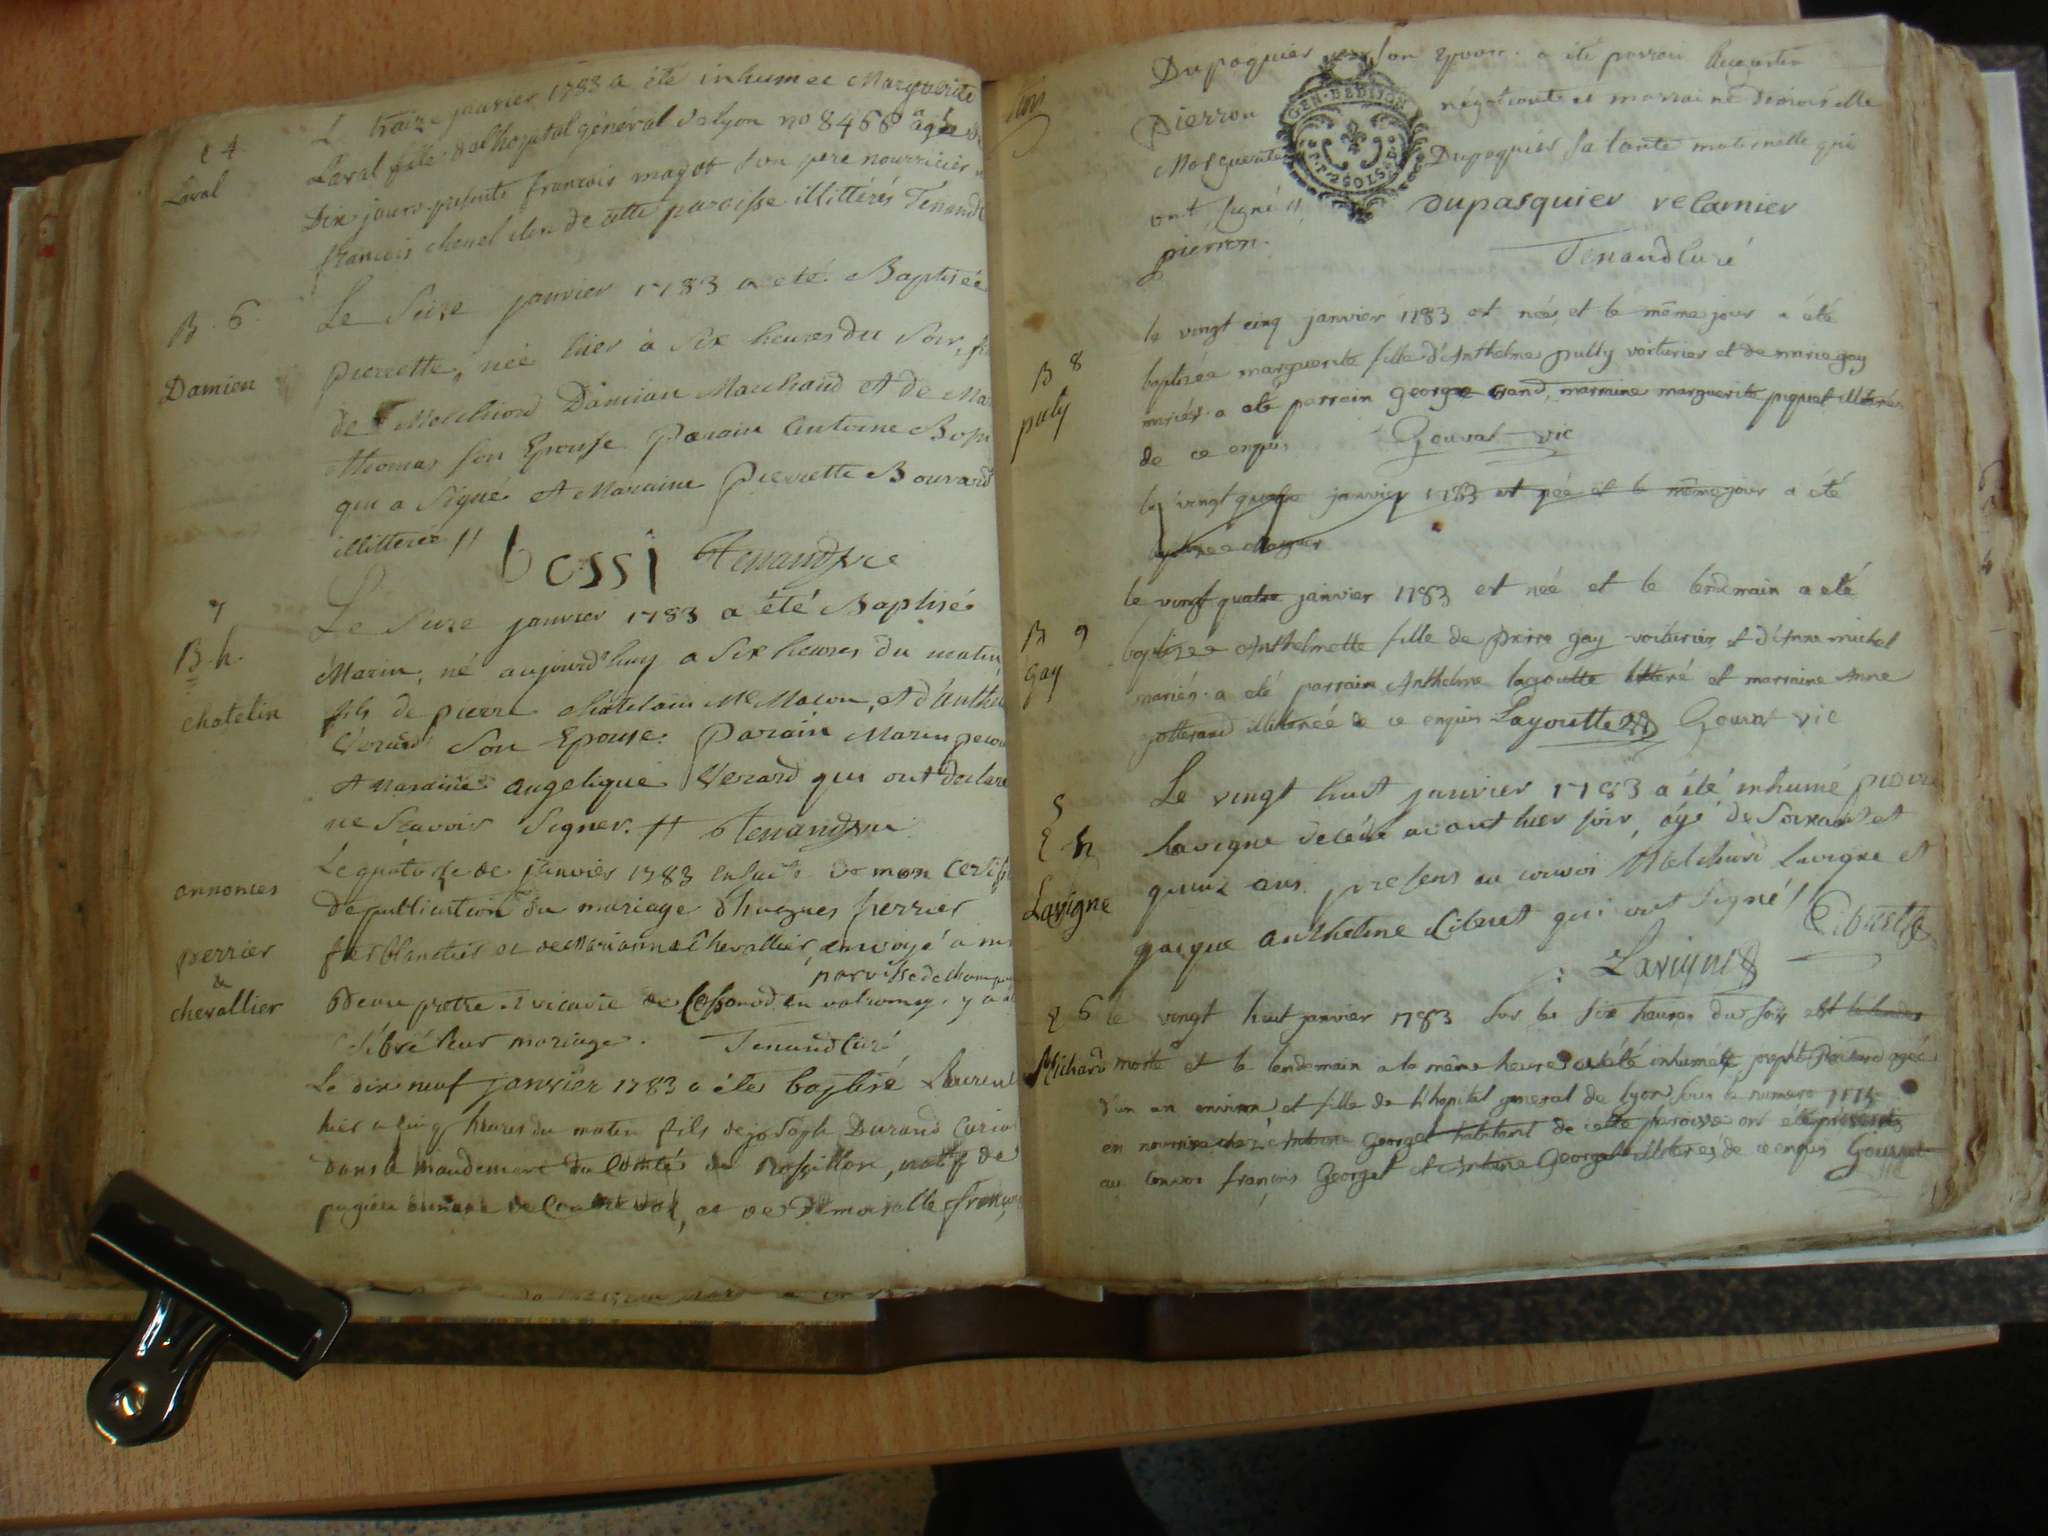 E 4
Laval
L treize janvier 1783 a été inhumée Marguerite
Laval fille de l'hopital général de lyon no 8466 agée
Dix jours presents francois mayot son pere nourricier
francois de cette paroisse illittérés Tenand
B. 6.
Damien
Le Seize janvier 1783 a eté Baptisée
pierrette, née hier à Six heures du Soir, fi
de Melchiord Damian Marchand et de Mar
thomas son Epouse Parain Antoine Bossi
qui a Signé et Maraine Pierrette Bouvard
illitterée //
bossi Tenand
7
B. h.
chatelin
Le Seize janvier 1783 a été Baptisé
Marin, né aujourd'huy a Six heures du matin
fils de pierre chatelain Me Macon, et d'Anthel
Verard Son Epouse. Parain Marin
et Maraine angelique Verard qui ont declaré
ne Scavoir Signer. // Tenand
annonces
perrier
&
chevallier
Le quatorze de janvier 1783 ensuite de mon certifi
de publication du mariage d'hugues perrier
ferblantier et de Marianne Chevallier, envoyé a m
paroisse de champ
pretre vicaire de en valromey, y a
célébré leur mariage. Tenand Curé
Le dix neuf janvier 1783 a été baptisé Laurent
hier a cinq heures du matin fils de joSeph Durand
dans le mandement du Comté de Rossillon, natif de
et de Demoiselle françoi
Dupaquier son Epouse. a été parrain Augustin
Pierron négotiante et marraine Demoiselle
Marguerite Dupaquier sa tante maternelle qui
ont signé // dupasquier relamier
pierron.
Tenand Curé
GEN. DE DIJON
B 8
pully
le vingt cinq janvier 1783 est née, et le même jour a été
baptisée marguerite fille d'Anthelme pully voiturier et de marie gay
mariés. a été parrain george grand, marraine marguerite piquet illiterés
de ce enquis. Gouvat vic
le vingt quatre janvier 1783 est née et le même jour a été
baptisée
B 9
gay
le vingt quatre janvier 1783 est née et le lendemain a été
baptisée Anthelmette fille de pierre gay voiturier, et d'Anne michel
mariés. a été parrain Anthelme lagoutte litteré et marraine Anne
gotterand illiterée de ce enquis Lagoutte Gouvat vic
5
E h
Lavigne
Le vingt huit janvier 1783 a été inhumé pierre
Lavigne decédé avant hier soir, âgé de Soixante et
quinze ans. presens au convoi Melchiord Lavigne et
jacque anthelme Cibuet qui ont signé
Lavigne Cibuet
E 6
Michard
le vingt huit janvier 1783 sur les six heures du soir est
morte et le lendemain a la même heure a été inhumée agée
d'un an environ et fille de l'hopital general de lyon sous le numero
en nourrice chez Antoine Georget habitant de cette paroisse ont été présents
au convoi françois Georget et Antoine Georget illiterés de ce enquis Gouvat